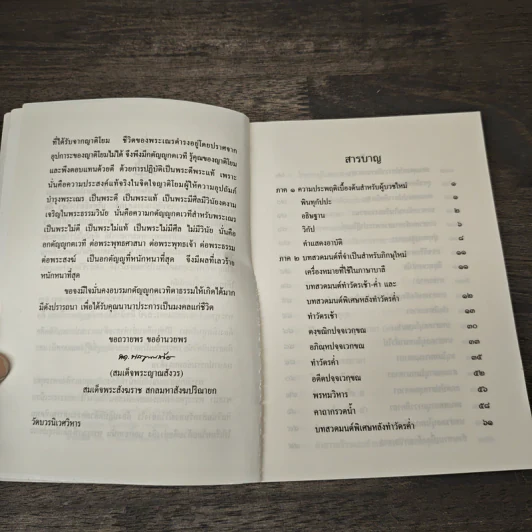 ที่ได้รับจากญาติโยม ชีวิตของพระเณรดำรงอยู่โดยปราศจาก
อุปการะของญาติโยมไม่ได้ จึงพึงมีกตัญญูกตเวที รู้คุณของญาติโยม
และพึงตอบแทนด้วยดี ด้วยการปฏิบัติเป็นพระดีพระแท้ เพราะ
นั่นคือความประสงค์แท้จริงในจิตใจญาติโยมผู้ให้ความอุปถัมภ์
บำรุงพระเณร เป็นพระดี เป็นพระแท้ เป็นพระมีศีลมีวินัยงดงาม
เจริญในพระธรรมวินัย นั่นคือความกตัญญูกตเวทีสำหรับพระเณร
เป็นพระไม่ดี เป็นพระไม่แท้ เป็นพระไม่มีศีล ไม่มีวินัย นั่นคือ
อกตัญญูกตเวที ต่อพระพุทธศาสนา ต่อพระพุทธเจ้า ต่อพระธรรม
ต่อพระสงฆ์ เป็นอกตัญญูที่หนักหนาที่สุด จึงมีผลที่เลวร้าย
หนักหนาที่สุด
ขอจงมีใจมั่นคงอบรมกตัญญูกตเวทิตาธรรมให้เกิดได้มาก
มีดังปรารถนา เพื่อได้รับคุณนานาประการเป็นมงคลแก่ชีวิต
ขอถวายพร ขออำนวยพร
(สมเด็จพระญาณสังวร)
สมเด็จพระสังฆราช สกลมหาสังฆปริณายก
วัดบวรนิเวศวิหาร
สารบาญ
ภาค ๑ ความประพฤติเบื้องต้นสำหรับผู้บวชใหม่ ๑
พินทุกัปปะ ๑
อธิษฐาน ๒
วิกัป ๖
คำแสดงอาบัติ ๘
ภาค ๒ บทสวดมนต์ที่จำเป็นสำหรับภิกษุใหม่ ๑๑
เครื่องหมายที่ใช้ในภาษาบาลี ๑๑
บทสวดมนต์ทำวัตรเช้า-ค่ำ และ
บทสวดมนต์พิเศษหลังทำวัตรค่ำ ๑๒
ทำวัตรเช้า ๑๓
ตงฺขณิกปจฺจเวกฺขณ ๓๐
อภิณฺหปจฺจเวกฺขณ ๓๓
ทำวัตรค่ำ ๓๕
อตีตปจฺจเวกฺขณ ๕๒
พรหมวิหาร ๕๖
คาถากรวดน้ำ ๕๘
บทสวดมนต์พิเศษหลังทำวัตรค่ำ ๖๑